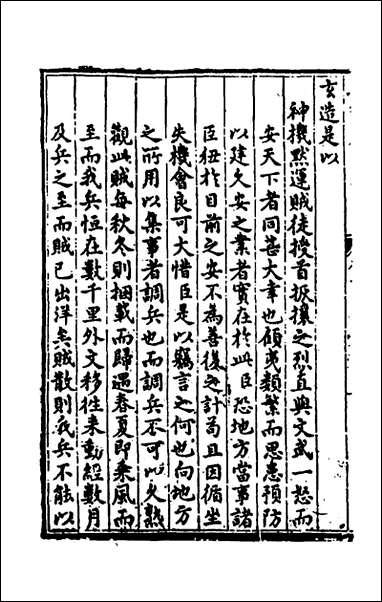 玄造是以
神機黙運賊徒授首掀攘之烈直與文武一怒而
安天下者同甚大幸也顧夷類繁而思患預防
以建久安之業者實在於此臣恐地方當事諸
臣狃於目前之安不為善後之計苟且因循坐
失機會良可大惜臣是以竊言之何也向地方
之所用以集事者調兵也而調兵不可以久熟
觀此賊每秋冬則捆載而歸遇春夏即乗風而
至而我兵恒在數千里外文移徃来動經數月
及兵之至而賊已出洋矣賊散則我兵不能以